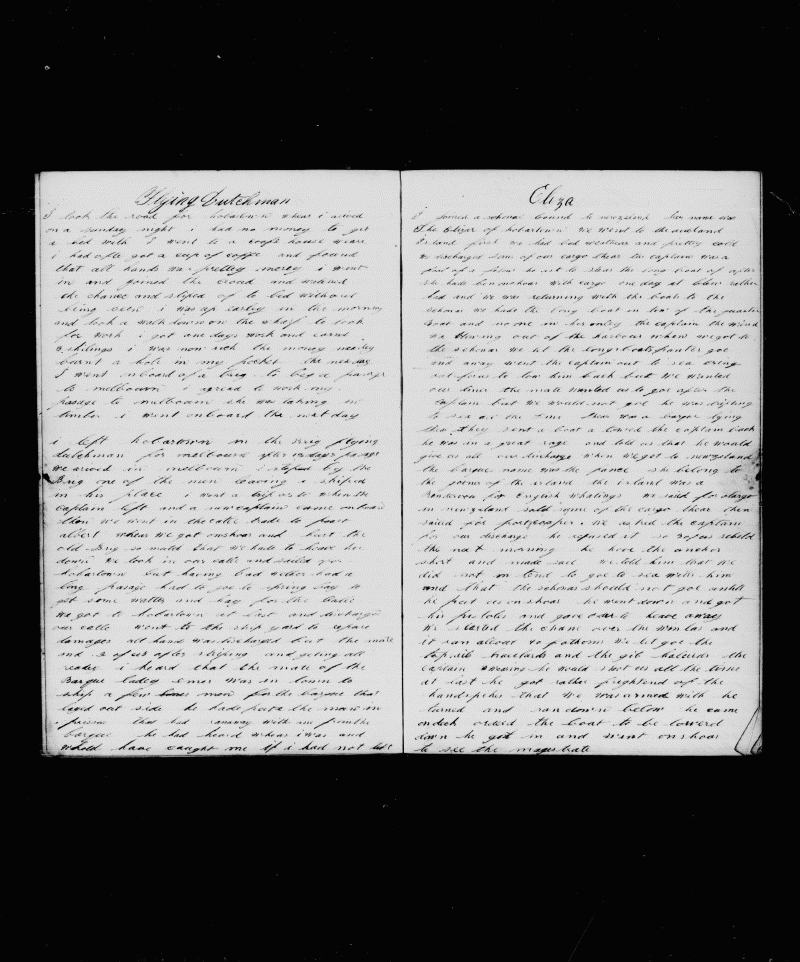 Flying Dutchman
I took the road for hobartown whear i arived
on a sunday night i had no money to get
a bed with I went to a coofe house weare
i had ofte got a cup of coffe and found
that all hands was prettey merey i went
in and joined the croud and watched
the chance and sliped of to bed without
being seen i was up earley in the morning
and took a walk downe on the wharf to look
for work i got one days work and earnd
shilings i was now rich the money nearley
burnt a hole in my pocket the nex day
I went onboard of a brig to beg a pasage
to melbourn i agreed to work my
pasage to melbourn she was taking in
timber i went onboard the next day
i left hobartown in the brig flying
dutchman for melbourn after days pasage
we arived in melbourn i stoped by the
Brig one of the men leaving i shiped
in his place i went a trip or to when the
captain left and a new captain came onboard
then we went in the catle trade to poart
albert whear we got onshoar and hurt the
old Brig so mutch that we hade to heave her
down We took in our catle and sailed for
hobartown but having bad wether had a
long pasage had to goe to spring bay to
get some watter and hay for the catle
We got to hobartown at last and discharged
our catle went to the ship yard to repare
damages all hands was discharged but the mate
and 3 of us after striping and geting all
readie i heard that the mate of the
Barque ladey emer was in town to
ship a few men for the barque that
layed out side he hade pute the men in
prison that had runaway with me from the
barque he had heard whear i was and
whold have caught me if i had not left
Eliza
I joined a schoner bound to newzeland her name was
The Elizer of hobartown We went to the aucland
Island first we had bad weathear and prettey cold
We discharged some of our cargo thear the captain was a
he ust to stear the long boat of after
she hade bin onshoar with cargo one day it blew rather
had and we was returning with the boats to the
schoner we hade the long boat in tow of the quarter
Boat and no one in her onley the captain the wind
was blowing out of the harbour when we got to
the schoner We let the longboats painter goe
and away went the captain out to sea crieng
out for us to tow him back but We wanted
our diner the mate wanted us to goe after the
captain but We would not goe he was drifting
to sea all the time thear was a barque lying
thear they sent a boat a towed the captain back
he was in a great rage and told us that he would
give us all our discharge when We got to newzeland
the barques name was the she belong to
the of the island the island was a
for English whalings We saild for otargo
in newzeland sold some of the cargo thear then
sailed for We asked the captain
for our discharge he refused it so
the next morning he hove the anchor
short and made sail We told him that We
did not in tend to goe to sea with him
and that the schoner should not goe untill
he put us on shoar he went down and got
his pistols and gave orders to heave away
We started the chane over the winlas and
it ran allout 40 fathoms We let goe the
topsail haulards and the gib halerds the
captain swearing he would shoot us all the time
at last he got rather frightend of the
handspikes that We was armed with he
turned and ran down below he came
ondeck ordred the boat to be lowered
down he got in and went onshoar
to see the magestrate